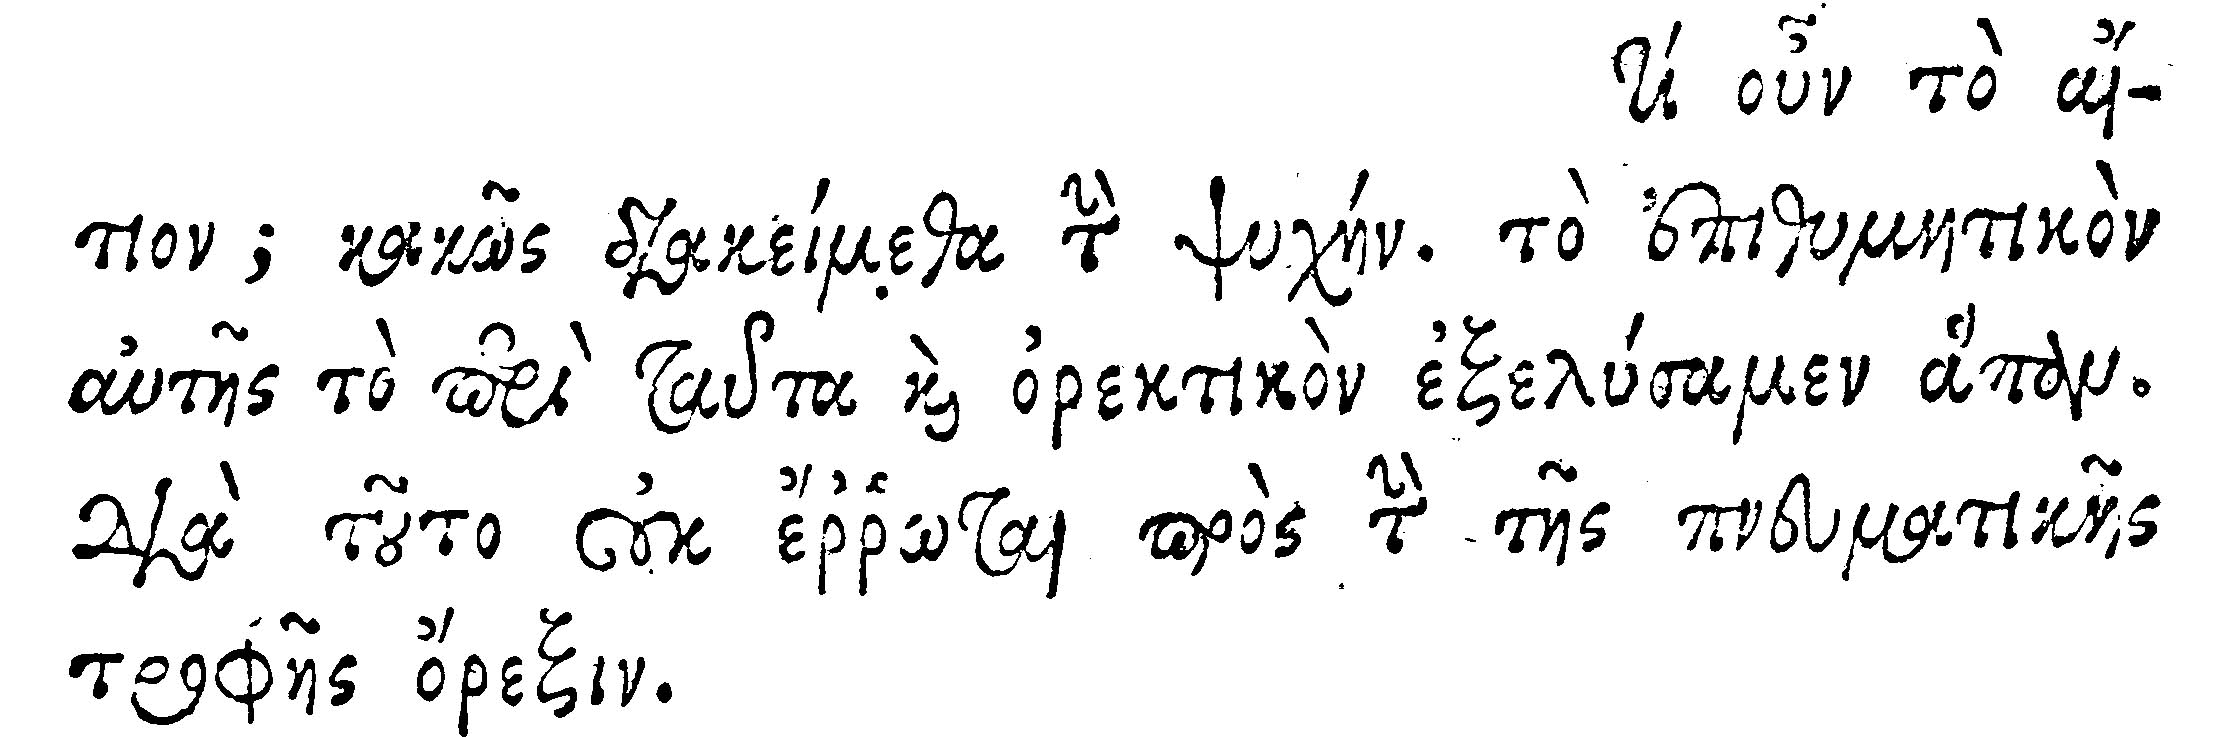 τί οὖν τὸ αἴ-
τιον; κακῶς διακείμεθα τὴν ψυχήν. τὸ ἐπιθυμητικὸν
αὐτῆς τὸ περὶ ταῦτα καὶ ὀρεκτικὸν ἐξελύσαμεν ἅπαν.
διὰ τοῦτο οὐκ ἔῤῥωται πρὸς τὴν τῆς πνευματικῆς
τροφῆς ὄρεξιν.